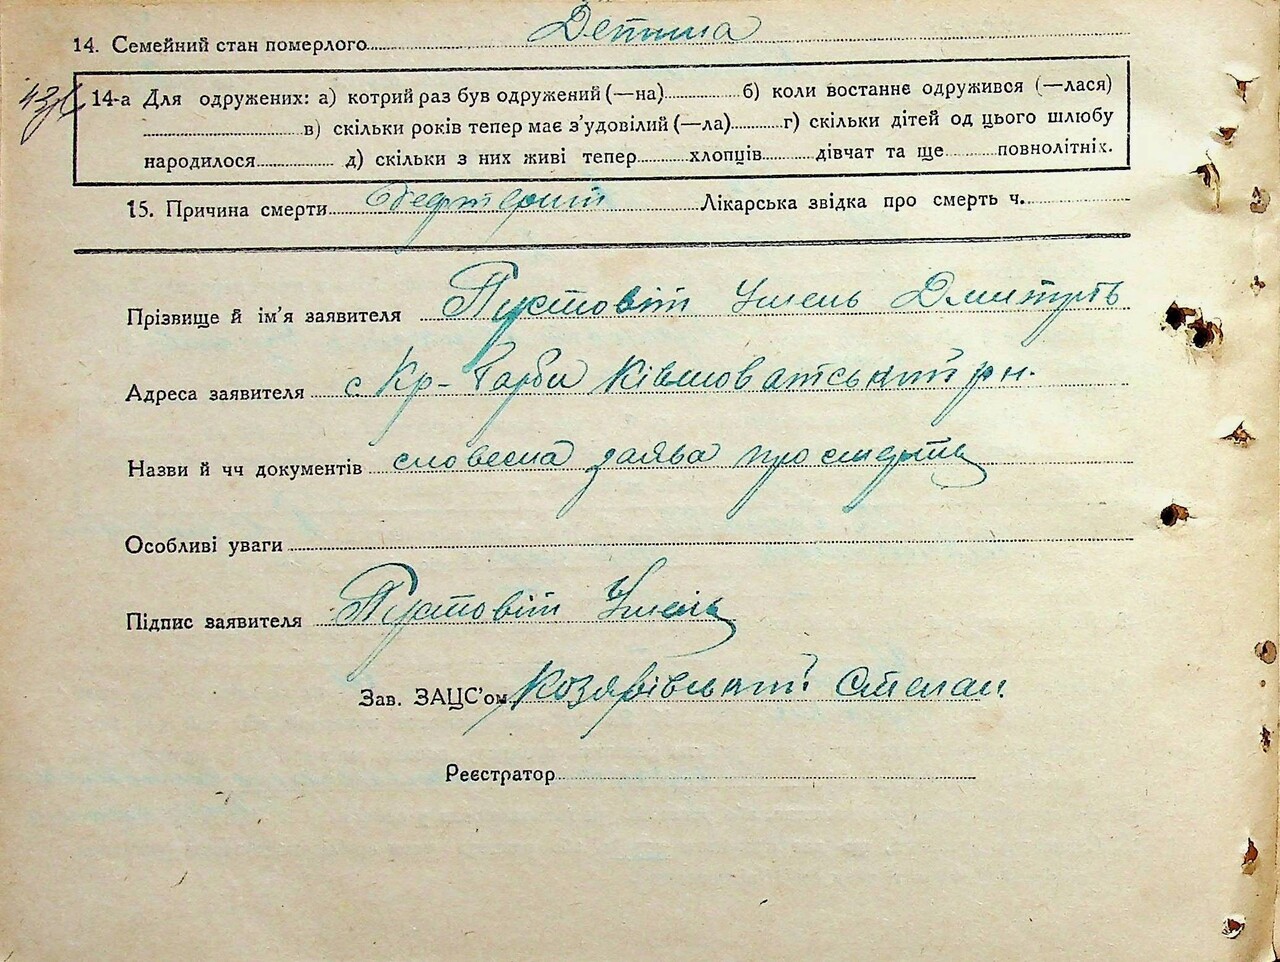 14. Семейний стан померлого Дитина
43зв
14-а Для одружених: а) котрий раз був одружений (—на) б) коли востанне одружився (—лася)
в) скільки років тепер має з’удовілий (—ла) г) скільки дітей од цього шлюбу
народилося д) скільки з них живі тепер хлопців дівчат та ще повнолітніх.
15. Причина смерти Лікарська звідка про смерть ч.
Прізвище й ім’я заявителя Пустовіт
Адреса заявителя с. Кр-
Назви й чч документів словесна заява про смерть
Особливі уваги
Підпис заявителя Пустовіт
Зав. ЗАЦС’ом Степан
Реєстратор